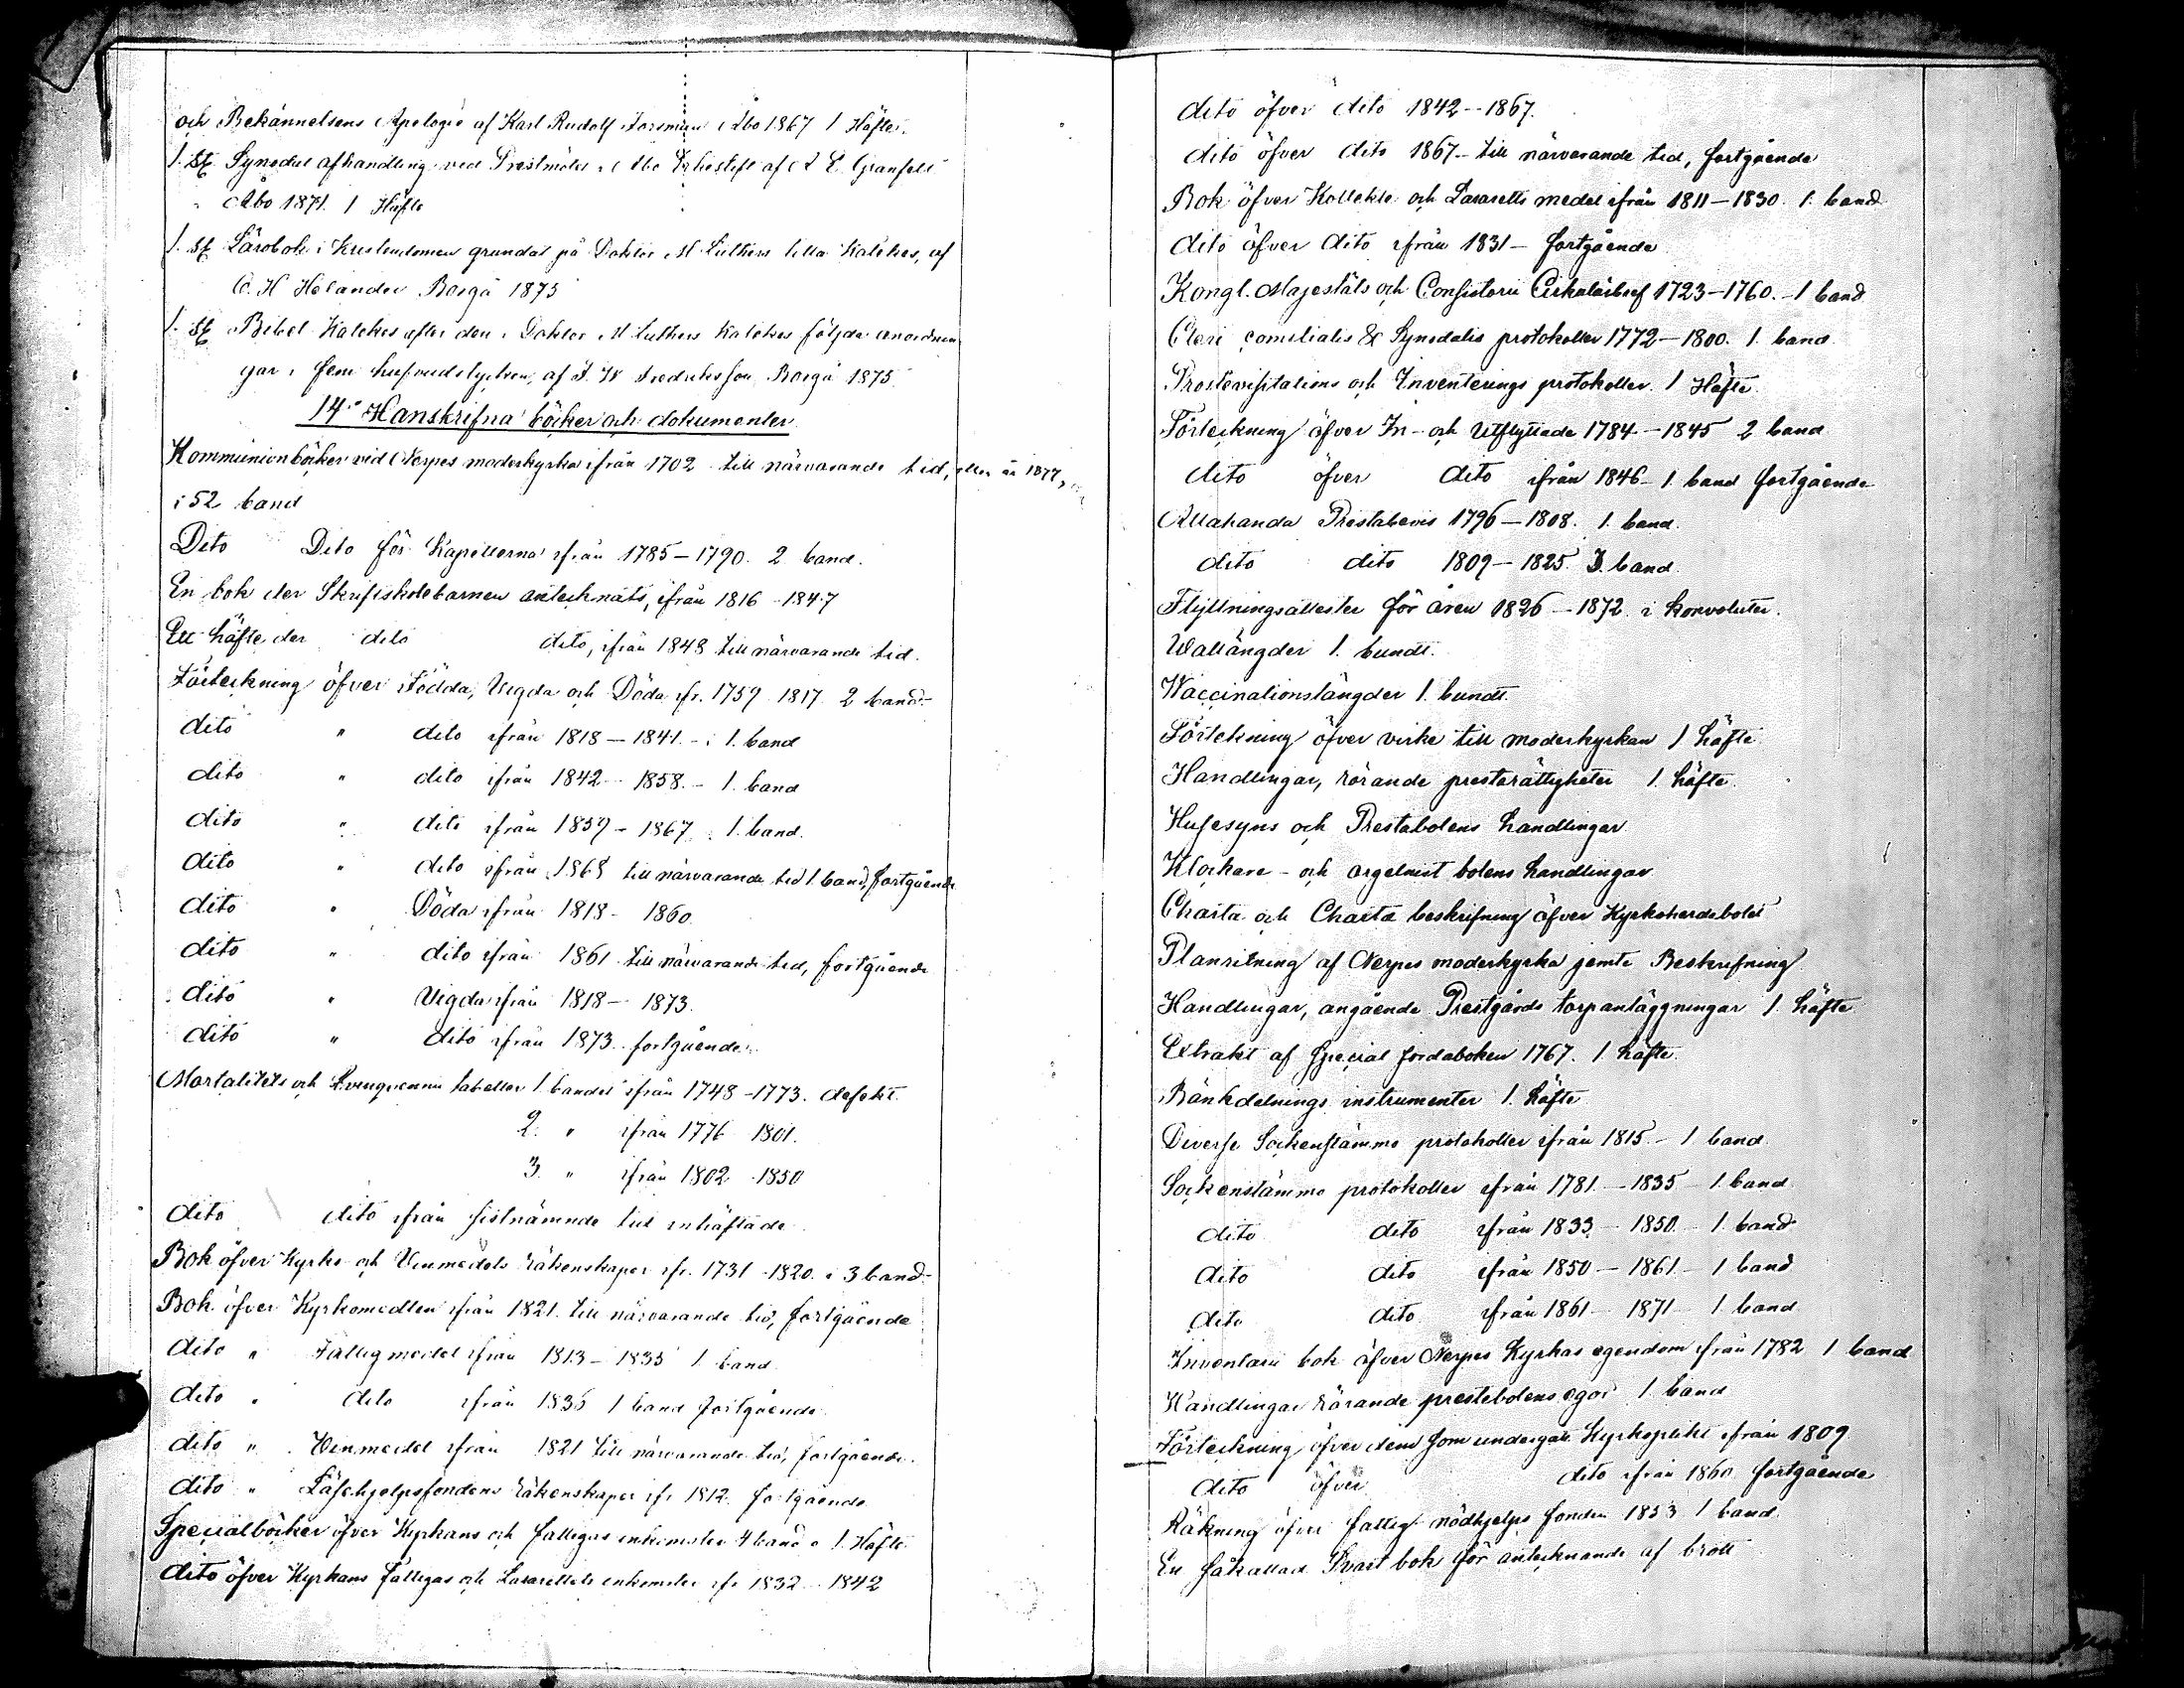 och Bekännelsens Apologie af Karl Rudolf Forsman Åbo 1867 1 Häfte.
1. st. Synodal afhandling ved Prestmötet i Åbo Erkestift af A E Granfelt
Åbo 1871. 1 Häfte
1. st. Lärobok i Kristendomen grundat på Doktor M Luthers lilla Katekes, af
O. H Helander Borgå 1875
1. st. Bibel Katekes efter den i Doktor M Luthers Katekes följda anordnin
gar i fem hufvudstycken, af F. W Fredriksson Borgå 1875.
14º Hanskrifna böcker och dokumenter
Kommunionböcker vid Nerpes moderkyrka ifrån 1702 till närvarande tid, eller år 1877,
i 52 band
Dito Dito för Kapellerna ifrån 1785–1790. 2 band.
En bok der Skriftskolebarnen antecknats, ifrån 1816–1847
Ett häfte der dito dito, ifrån 1848 till närvarande tid.
Förteckning öfver Födda, Vigda och Döda ifr. 1759 1817 2 band
dito " dito ifrån 1818–1841.–i 1. band
dito " dito ifrån 1842–1858.– 1. band
dito " dito ifrån 1859–1867 1. band.
dito " dito ifrån 1868 till närvarande tid 1. band, fortgående
dito " Döda ifrån 1818–1860.
dito " dito ifrån 1861 till närvarande tid, fortgående
dito " Vigda ifrån 1818–1873.
dito " dito ifrån 1873. fortgående.
Mortalitets och Qvinquennii tabeller 1. bandet ifrån 1748–1773. defekt.
2. " ifrån 1776 1801.
3 " ifrån 1802–1850
dito dito ifrån sistnämnde tid inhäftade
Bok öfver Kyrko och Vinmedels räkenskaper ifr. 1731–1820. i 3 band
Bok öfver Kyrkomedlen ifrån 1821. till närvarande tid, fortgående
dito " Fattigmedel ifrån 1813–1835 1 band
dito " dito ifrån 1836 1 band fortgående
dito " Vinmedel ifrån 1821 till närvarande tid, fortgående.
dito " Läsehjelpsfondens räkenskaper ifr 1812. fortgående
Specialböcker öfver Kyrkans och fattigas inkomster 4 band o 1. Häfte
dito öfver Kyrkans fattigas och Lasarettets inkomster ifr 1832–1842
dito öfver dito 1842–1867.
dito öfver dito 1867– till närvarande tid, fortgående
Bok öfver Kollekte och Lasaretts medel ifrån 1811–1830. 1. band
dito öfver dito ifrån 1831– fortgående
Kongl. Majestäts och Consistorii Cirkulärbref 1723–1760.–1 band
Cleri comitialis & Synodalis protokoller 1772–1800. 1. band.
Prostevisitations och Inventerings protokoller. 1 Häfte.
Förteckning öfver In- och Utflyttade 1784–1845 2 band
dito öfver dito ifrån 1846–1. band fortgående
Allahanda Prestabevis 1796–1808. 1. band.
dito dito 1809–1825. 3. band
Flyttningsattester för åren 1826–1872 i konvoluter.
Wallängder 1. bundt.
Waccinationslängder 1. bundt.
Förteckning öfver virke till moderkyrkan 1 häfte
Handlingar, rörande presterättigheter 1. häfte.
Husesyns och Prestabolens handlingar
Klockare- och orgelnist bolens handlingar
Charta och Charte beskrifning öfver Kyrkoherdebolet
Planritning af Nerpes moderkyrka jemte Beskrifning
Handlingar, angående Prestgårds torpanläggningar 1. häfte
Extrakt af Special jordaboken 1767. 1. häfte.
Bänkdelnings instrumenter 1. häfte
Diverse Sockenstämmo protokoller ifrån 1815– 1 band.
Sockenstämmo protokoller ifrån 1781.–1835– 1. band
dito dito ifrån 1833–1850– 1. band
dito dito ifrån 1850–1861– 1 band
dito dito ifrån 1861–1871– 1. band
Inventarii bok öfver Nerpes Kyrkas egendom ifrån 1782 1 band
Handlingar rörande prestebolens egor 1. band
Förteckning öfver dem som undergått Kyrkoplikt ifrån 1809
dito öfver dito ifrån 1860. fortgående
Räkning öfver fattig nödhjelps fonden 1853 1 band.
En såkallad Svart bok för antecknande af brott